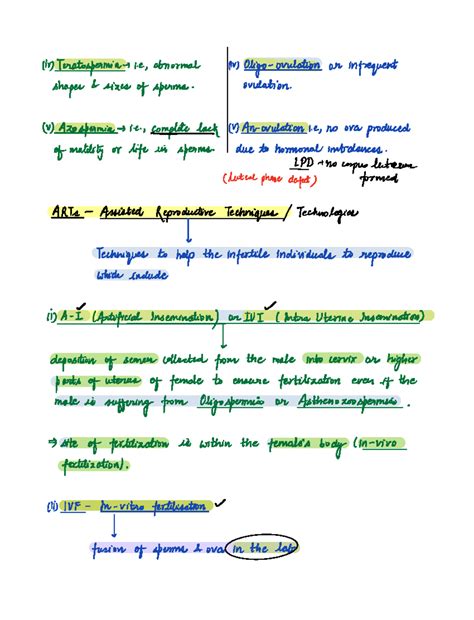 (iv) Teratospermia → i.e, abnormal
shapes & sizes of sperms.
(v) Azospermia → i.e., complete lack
of motility or life in sperms.
(iv) Oligo-ovulation or infrequent
ovulation.
(v) An-ovulation i.e, no ova produced
due to hormonal imbalances.
LPD → no corpus luteum
(Luteal phase defect) formed
ARTs - Assisted Reproductive Techniques / Technologies
Techniques to help the infertile individuals to reproduce
which include
(i) A-I (Artificial Insemination) or IUI (Intra Uterine Insemination)
deposition of semen collected from the male into cervix or higher
parts of uterus of female to ensure fertilization even if the
male is suffering from Oligospermia or Asthenozoospermia.
⇒ site of fertilization is within the female's body (in-vivo
fertilization).
(ii) IVF - In-vitro fertilisation
fusion of sperms & ova in the lab